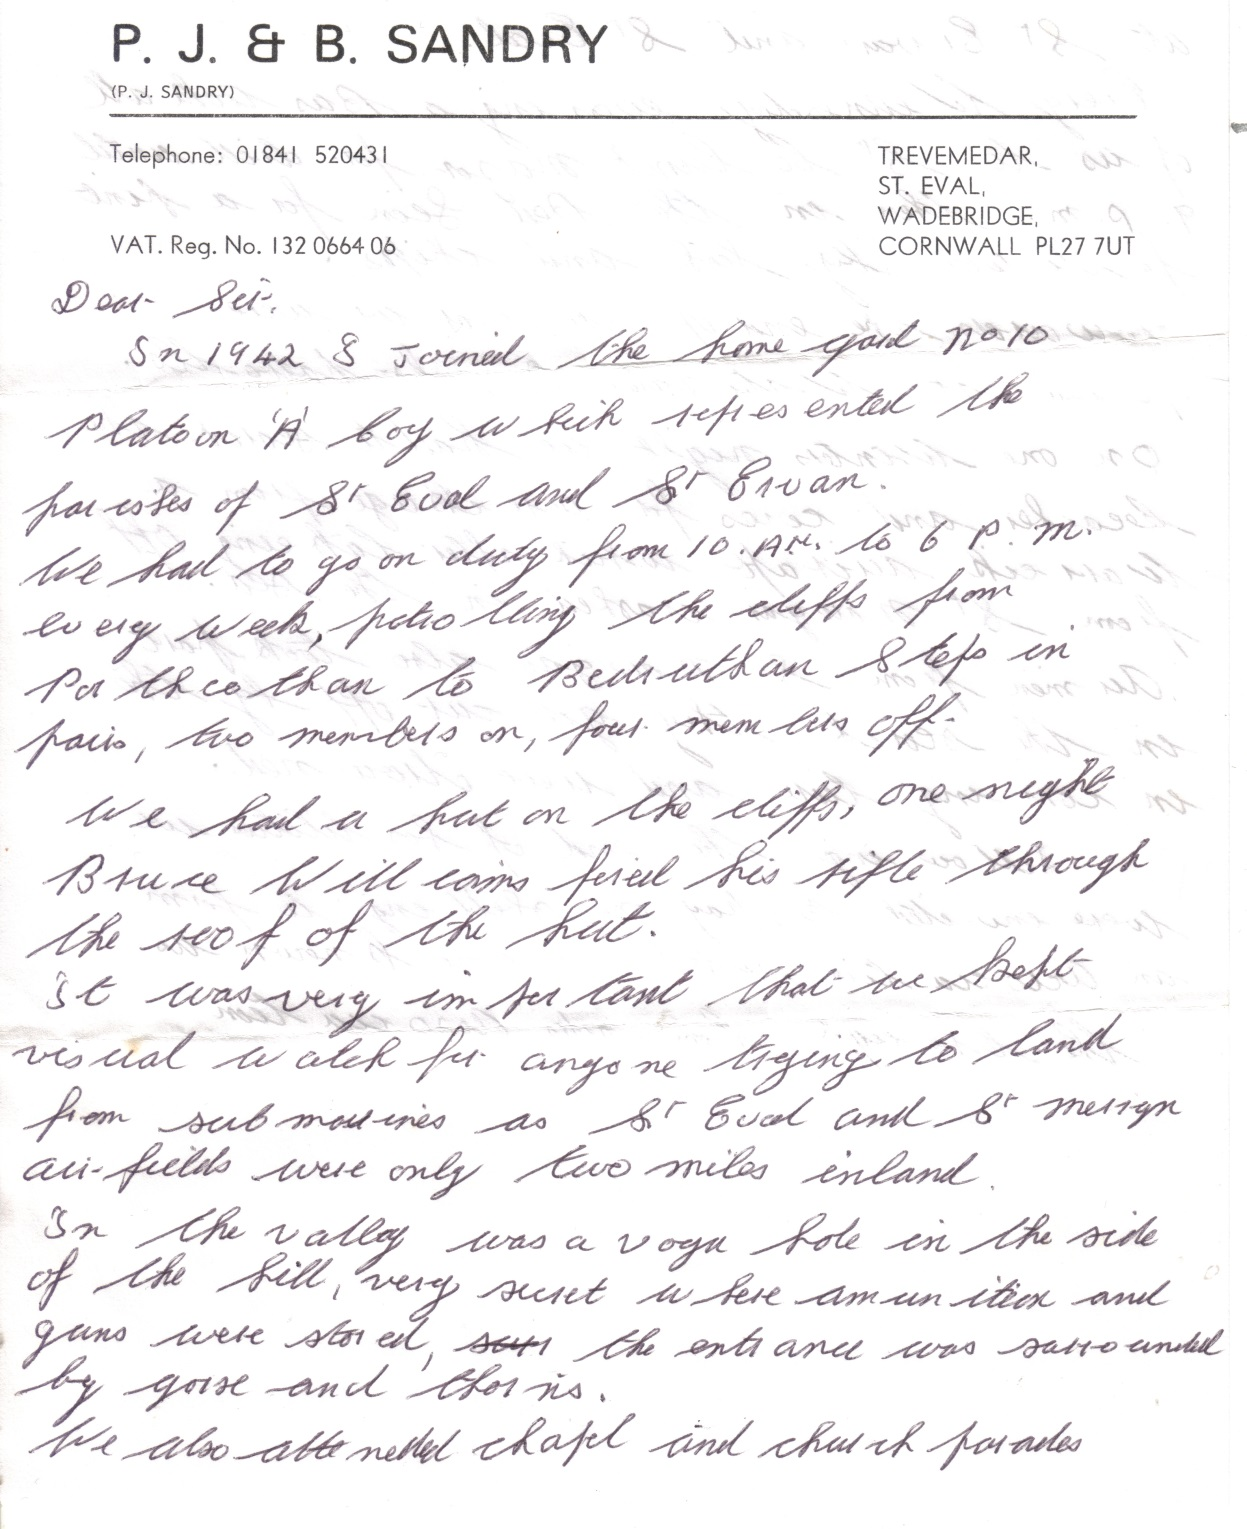 P. J. & B. SANDRY
(P. J. SANDRY)
Telephone: 01841 520431
VAT. Reg. No. 132 0664 06
TREVEMEDAR,
ST. EVAL,
WADEBRIDGE,
CORNWALL PL27 7UT
Dear Sir.
In 1942 I Joined the home gard No 10
Platoon 'A' boy which represented the
parishes of St Eval and St Ervan.
We had to go on duty from 10. AM. to 6 P. M.
every week, patrolling the cliffs from
Porthcothan to Bedruthan Steps in
pairs, two members on, four members off.
We had a hut on the cliffs, one night
Bruce Williams fired his rifle through
the roof of the hut.
It was very important that we kept
visual watch for anyone trying to land
from submarines as St Eval and St Merryn
air-fields were only two miles inland.
In the valley was a vogu hole in the side
of the hill, very secret where amunition and
guns were stored, the entrance was surrounded
by gorse and thorns.
We also attended chapel and church parades